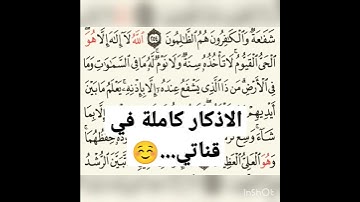 شَفَٰعَةٞۗ وَٱلۡكَٰفِرُونَ هُمُ ٱلظَّٰلِمُونَ ٢٥٤ ٱللَّهُ لَآ إِلَٰهَ إِلَّا هُوَ
ٱلۡحَيُّ ٱلۡقَيُّومُۚ لَا تَأۡخُذُهُۥ سِنَةٞ وَلَا نَوۡمٞۚ لَّهُۥ مَا فِي ٱلسَّمَٰوَٰتِ وَمَا
فِي ٱلۡأَرۡضِۗ مَن ذَا ٱلَّذِي يَشۡفَعُ عِندَهُۥٓ إِلَّا بِإِذۡنِهِۦۚ يَعۡلَمُ مَا بَيۡنَ
أَيۡدِيهِمۡ
إِلَّا بِمَا
الاذكار كاملة في
شَآءَۚ وَسِعَ
حِفۡظُهُمَاۚ
قناتي...☺️
وَهُوَ ٱلۡعَلِيُّ ٱلۡعَظِيمُ
تَّبَيَّنَ ٱلرُّشۡدُ
InShOt